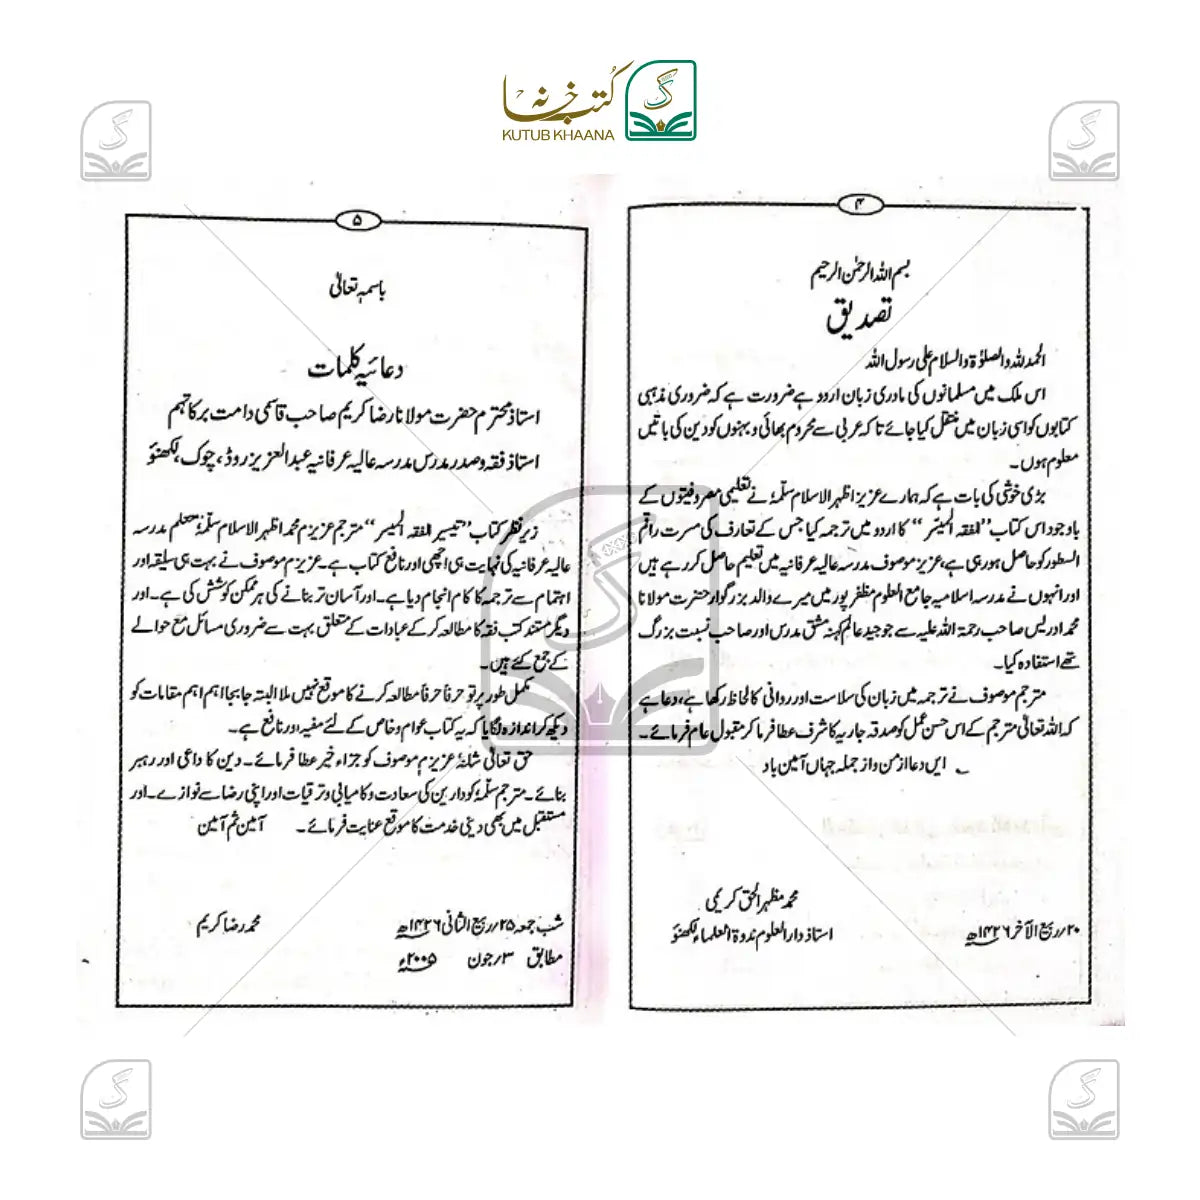 کتب خانہ
KUTUB KHAANA
۴
بسم اللہ الرحمٰن الرحیم
تصدیق
الحمد للہ والصلوٰۃ والسلام علی رسول اللہ
اس ملک میں مسلمانوں کی مادری زبان اردو ہے ضرورت ہے کہ ضروری مذہبی
کتابوں کو اسی زبان میں منتقل کیا جائے تاکہ عربی سے محروم بھائی و بہنوں کو دین کی باتیں
معلوم ہوں۔
بڑی خوشی کی بات ہے کہ ہمارے عزیز اظہر الاسلام سلّمہٗ نے تعلیمی مصروفیتوں کے
باوجود اس کتاب "الفقہ المیسر" کا اردو میں ترجمہ کیا جس کے تعارف کی مسرت راقم
السطور کو حاصل ہو رہی ہے، عزیز موصوف مدرسہ عالیہ عرفانیہ میں تعلیم حاصل کر رہے ہیں
اور انہوں نے مدرسہ اسلامیہ جامع العلوم مظفر پور میں میرے والد بزرگوار حضرت مولانا
محمد ادریس صاحب رحمۃ اللہ علیہ سے جو جید عالم کہنہ مشق مدرس اور صاحب نسبت بزرگ
تھے استفادہ کیا۔
مترجم موصوف نے ترجمہ میں زبان کی سلاست اور روانی کا لحاظ رکھا ہے، دعا ہے
کہ اللہ تعالیٰ مترجم کے اس حسن عمل کو صدقہ جاریہ کا شرف عطا فرما کر مقبول عام فرمائے۔
ایں دعا از من و از جملہ جہاں آمین باد
محمد مظہر الحق کریمی
استاذ دار العلوم ندوۃ العلماء لکھنؤ
۲۰؍ ربیع الآخر ۱۴۲۶ھ
۵
باسمہٖ تعالیٰ
دعائیہ کلمات
استاذ محترم حضرت مولانا رضا کریم صاحب قاسمی دامت برکاتہم
استاذ فقہ و صدر مدرس مدرسہ عالیہ عرفانیہ عبد العزیز روڈ، چوک، لکھنؤ
زیر نظر کتاب "تیسیر الفقہ المیسر" مترجم عزیزم محمد اظہر الاسلام سلّمہٗ متعلم مدرسہ
عالیہ عرفانیہ کی نہایت ہی اچھی اور نافع کتاب ہے۔ عزیزم موصوف نے بہت ہی سلیقہ اور
اہتمام سے ترجمہ کا کام انجام دیا ہے۔ اور آسان تر بنانے کی ہر ممکن کوشش کی ہے۔ اور
دیگر مستند کتب فقہ کا مطالعہ کر کے عبادات کے متعلق بہت سے ضروری مسائل مع حوالے
کے جمع کئے ہیں۔
مکمل طور پر تو حرفاً حرفاً مطالعہ کرنے کا موقع نہیں ملا البتہ جابجا اہم اہم مقامات کو
دیکھ کر اندازہ لگایا کہ یہ کتاب عوام و خاص کے لئے مفید اور نافع ہے۔
حق تعالیٰ شانہٗ عزیزم موصوف کو جزاء خیر عطا فرمائے۔ دین کا داعی اور رہبر
بنائے۔ مترجم سلّمہٗ کو دارین کی سعادت و کامیابی و ترقیات اور اپنی رضا سے نوازے۔ اور
مستقبل میں بھی دینی خدمت کا موقع عنایت فرمائے۔ آمین ثم آمین
محمد رضا کریم
شب جمعہ ۲۵؍ ربیع الثانی ۱۴۲۶ھ
مطابق ۳؍ جون ۲۰۰۵ء